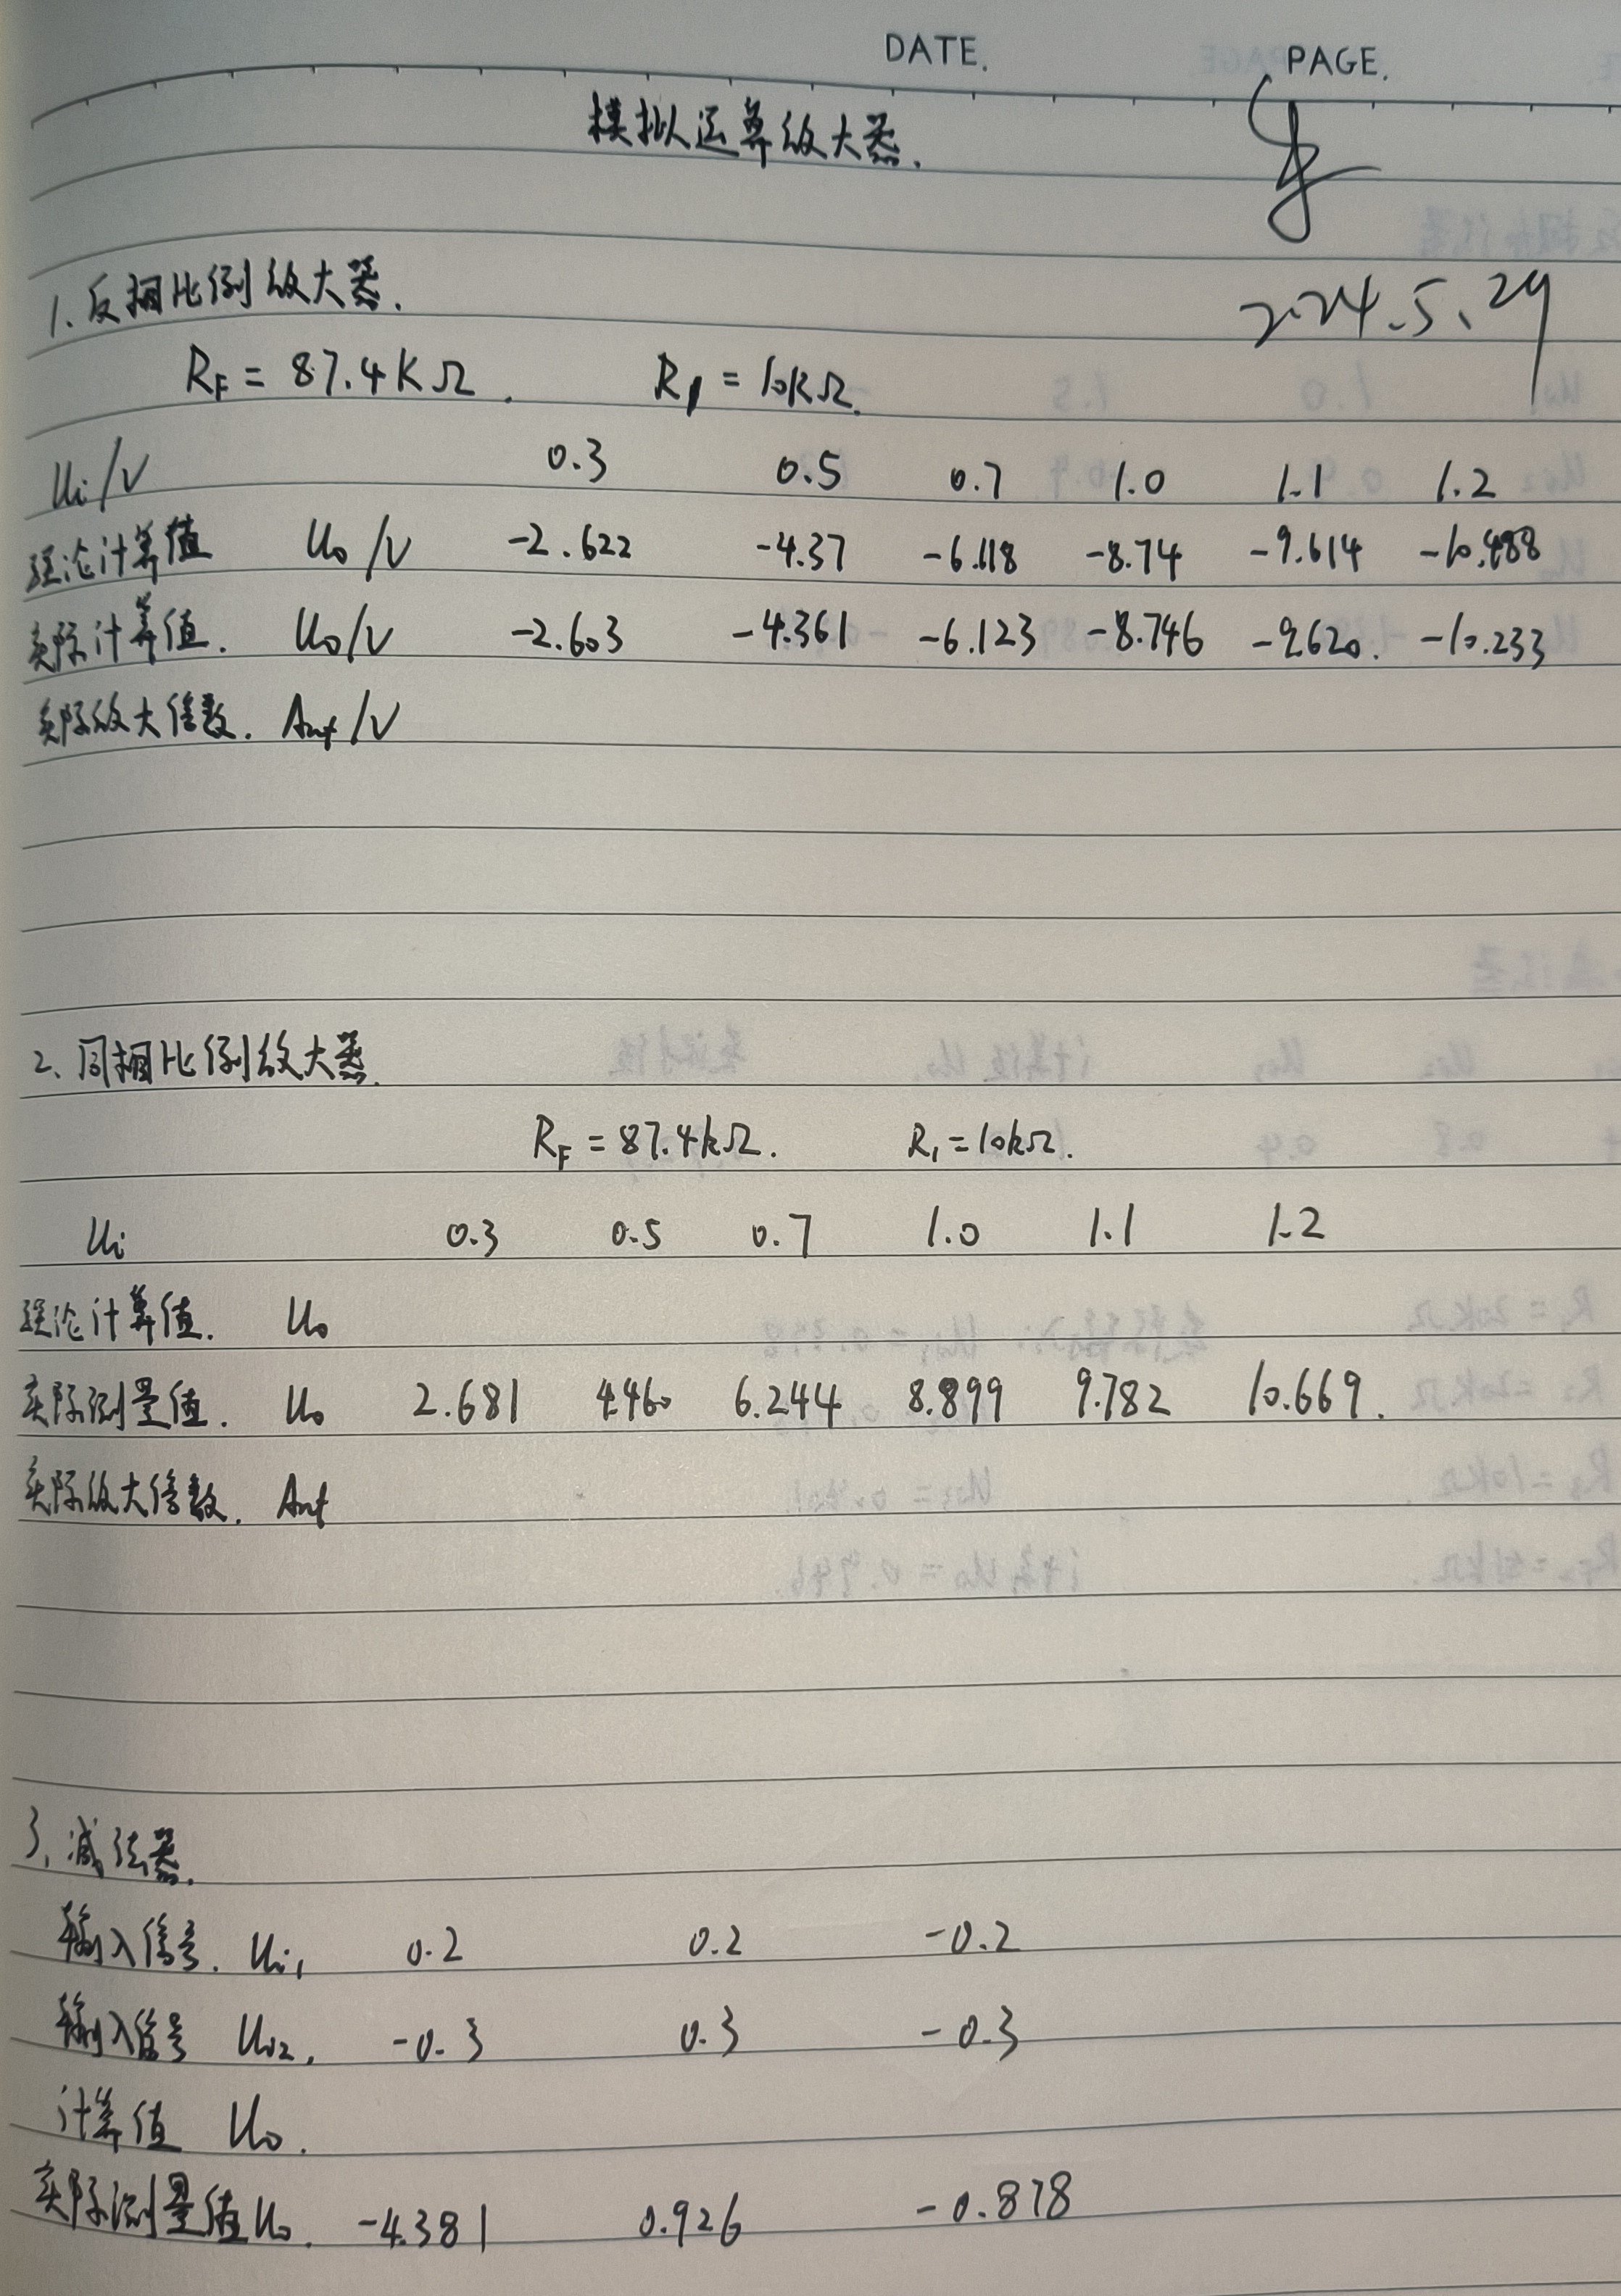 DATE.
PAGE.
模拟运算放大器.
2024.5.29
1.反相比例放大器.
RF = 87.4KΩ. R1 = 10KΩ.
Ui/V 0.3 0.5 0.7 1.0 1.1 1.2
理论计算值 Uo/V -2.622 -4.37 -6.118 -8.74 -9.614 -10.488
实际计算值. Uo/V -2.603 -4.361 -6.123 -8.746 -9.620. -10.233
实际放大倍数. Auf/V
2、同相比例放大器.
RF = 87.4kΩ. R1 = 10kΩ.
Ui 0.3 0.5 0.7 1.0 1.1 1.2
理论计算值. Uo
实际测量值. Uo 2.681 4.460 6.244 8.899 9.782 10.669.
实际放大倍数. Auf
3、减法器.
输入信号. Ui1 0.2 0.2 -0.2
输入信号 Ui2. -0.3 0.3 -0.3
计算值 Uo.
实际测量值Uo. -4.381 0.926 -0.878